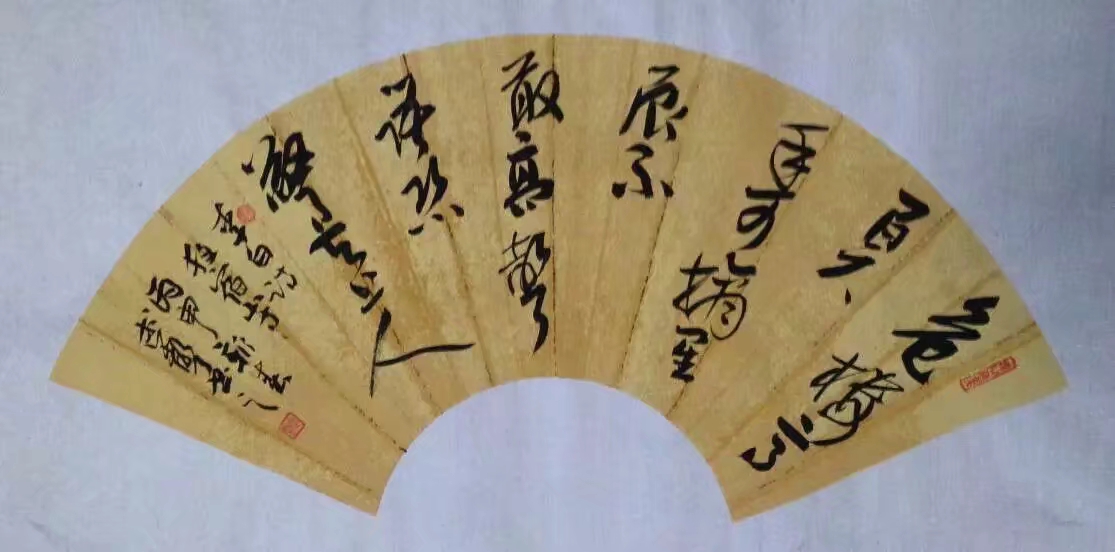 危樓高
百尺
手可摘星
辰不
敢高聲
語恐
驚天上人
李白诗
夜宿山寺
丙申新春